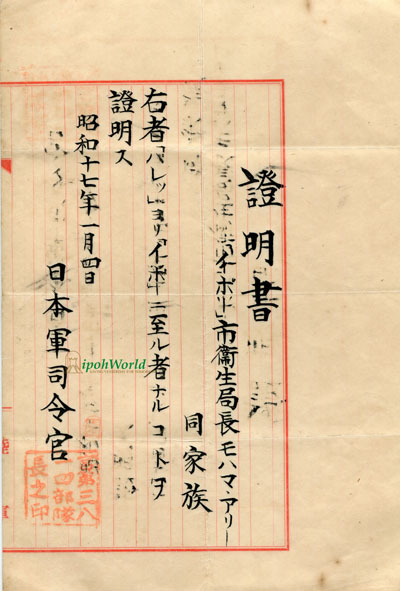 證明書
「イポー」市衞生局長モハマ・アリー
同家族
右者「パレッ」ヨリ「イポー」ニ至ル者ナルコトヲ
證明ス
昭和十七年一月四日
日本軍司令官
第三八
一四部隊
長之印
ipohWorld